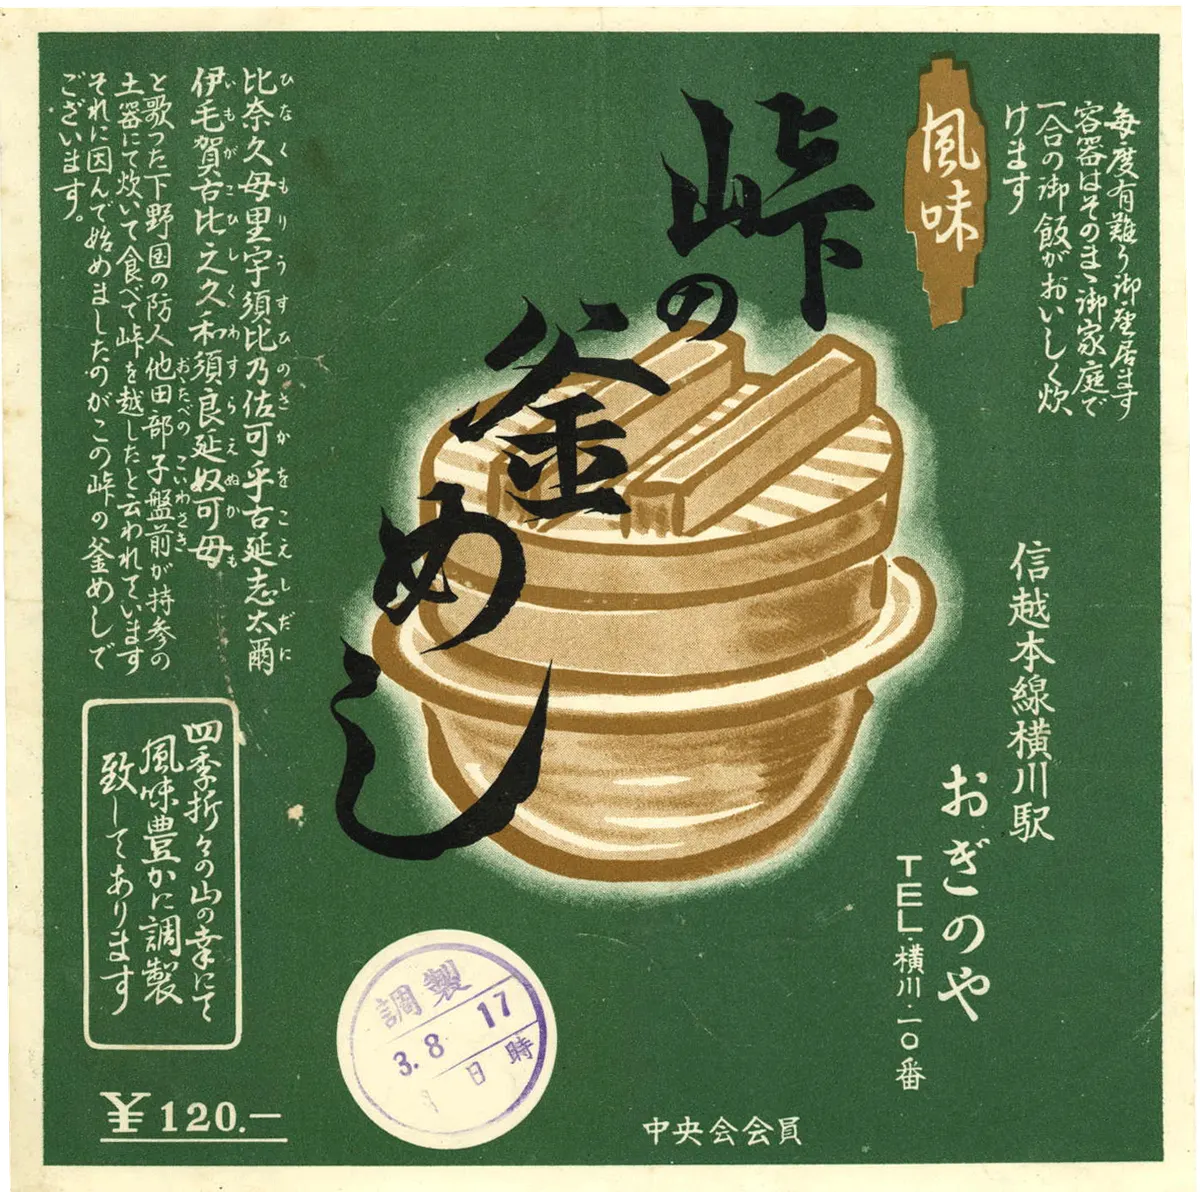 毎度有難う御座居ます
容器はそのまゝ御家庭で
一合の御飯がおいしく炊
けます
風味
峠の
釜めし
信越本線横川駅
おぎのや
TEL・横川・一〇番
比奈久母里宇須比乃佐可乎古延志太爾
ひなくもりうすひのさかをこえしだに
伊毛賀古比之久和須良延奴可母
いもがこひしくわすらえぬかも
と歌つた下野国の防人他田部子盤前が持参の
おさたべの こいわさき
土器にて炊いて食べて峠を越したと云われています
それに因んで始めましたのがこの峠の釜めしで
ございます。
四季折々の山の幸にて
風味豊かに調製
致してあります
¥120.—
調製
3.8 17
日 時
中央会会員